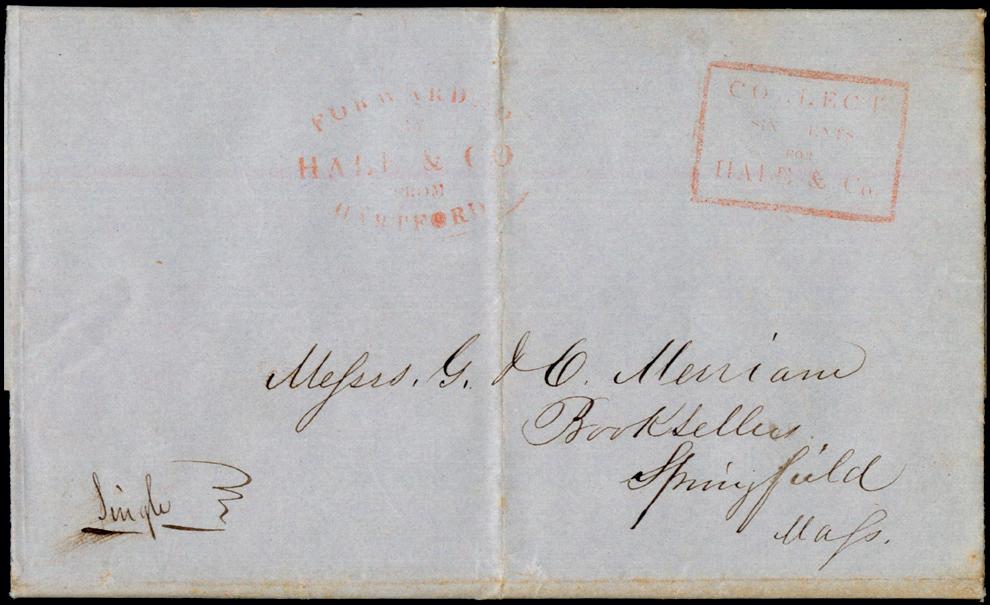 FORWARDED
BY
HALE & CO.
FROM
HARTFORD
COLLECT
SIX CENTS
FOR
HALE & Co.
Messrs. G. & C. Merriam
Booksellers
Springfield
Mass.
Single